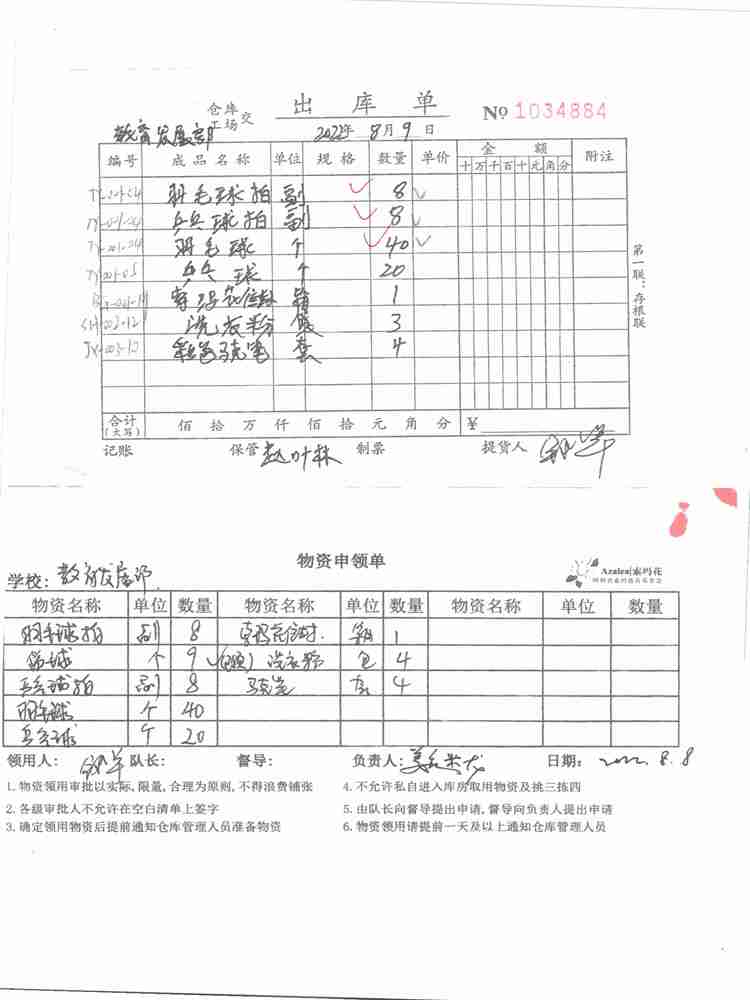 仓库
工场 交 出库单 № 1034884
教育发展部 2022年 8月9日
编号 成品名称 单位 规格 数量 单价 金额 附注
十万千百十元角分
羽毛球拍 副 8
乒乓球拍 副 8
羽毛球 个 40
乒乓球 个 20
箱 1
洗衣粉 袋 3
彩色马克笔 套 4
第一联：存根联
合计(大写) 佰拾万仟佰拾元角分 ¥
记账 保管 赵叶林 制票 提货人
物资申领单
Azalea|索玛花
学校：教育发展部
物资名称 单位 数量 物资名称 单位 数量 物资名称 单位 数量
羽毛球拍 副 8 索玛花信封 箱 1
个 9 洗衣粉 包 4
乒乓球拍 副 8 马克笔 套 4
羽毛球 个 40
乒乓球 个 20
领用人： 队长： 督导： 负责人： 日期：2022.8.8
1.物资领用审批以实际,限量,合理为原则,不得浪费铺张 4.不允许私自进入库房取用物资及挑三拣四
2.各级审批人不允许在空白清单上签字 5.由队长向督导提出申请,督导向负责人提出申请
3.确定领用物资后提前通知仓库管理人员准备物资 6.物资领用请提前一天及以上通知仓库管理人员